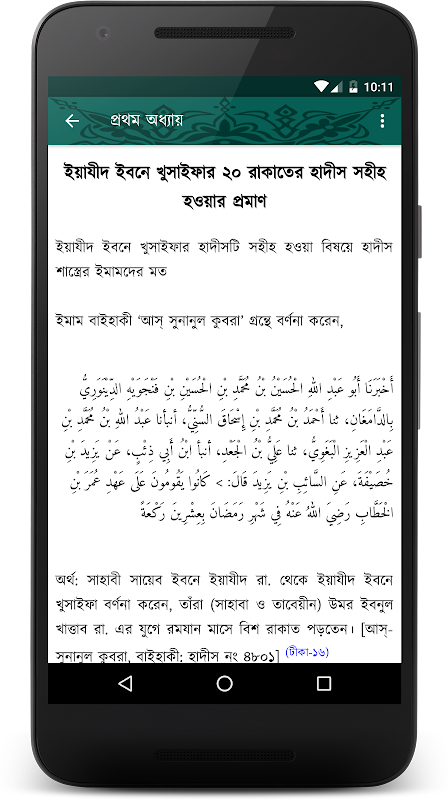 10:11
প্রথম অধ্যায়
ইয়াযীদ ইবনে খুসাইফার ২০ রাকাতের হাদীস সহীহ
হওয়ার প্রমাণ
ইয়াযীদ ইবনে খুসাইফার হাদীসটি সহীহ হওয়া বিষয়ে হাদীস
শাস্ত্রের ইমামদের মত
ইমাম বাইহাকী ‘আস্ সুনানুল কুবরা’ গ্রন্থে বর্ণনা করেন,
أَخْبَرَنَا أَبُو عَبْدِ اللهِ الْحُسَيْنُ بْنُ مُحَمَّدِ بْنِ الْحُسَيْنِ بْنِ فَنْجَوَيْهِ الدِّيْنَوَرِيُّ
بِالدَّامَغَانِ، ثنا أَحْمَدُ بْنُ مُحَمَّدِ بْنِ إِسْحَاقَ السُّنِّيُّ، أنبأنا عَبْدُ اللهِ بْنُ مُحَمَّدِ بْنِ
عَبْدِ الْعَزِيزِ الْبَغَوِيُّ، ثنا عَلِيُّ بْنُ الْجَعْدِ، أنبأ ابْنُ أَبِي ذِئْبٍ، عَنْ يَزِيدَ بْنِ
خُصَيْفَةَ، عَنِ السَّائِبِ بْنِ يَزِيدَ قَالَ: > كَانُوا يَقُومُونَ عَلَى عَهْدِ عُمَرَ بْنِ
الْخَطَّابِ رَضِيَ اللهُ عَنْهُ فِي شَهْرِ رَمَضَانَ بِعِشْرِينَ رَكْعَةً
অর্থ: সাহাবী সায়েব ইবনে ইয়াযীদ রা. থেকে ইয়াযীদ ইবনে
খুসাইফা বর্ণনা করেন, তাঁরা (সাহাবা ও তাবেয়ীন) উমর ইবনুল
খাত্তাব রা. এর যুগে রমযান মাসে বিশ রাকাত পড়তেন। [আস্-
সুনানুল কুবরা, বাইহাকী: হাদীস নং ৪৮০১] (টীকা-১৬)